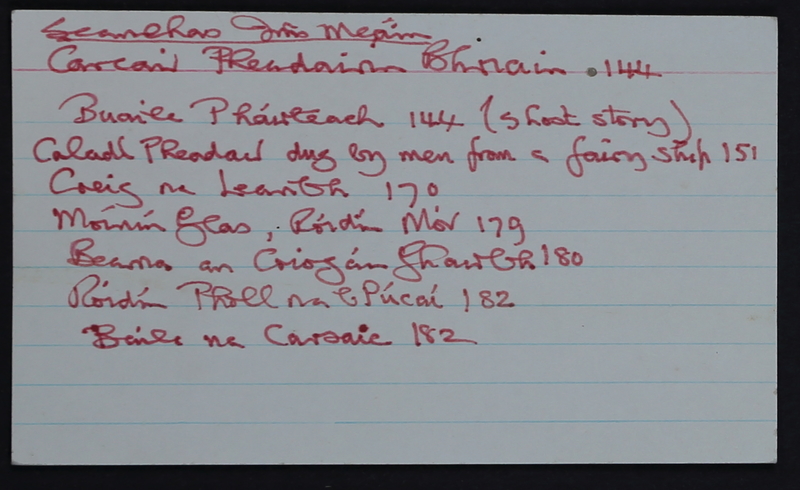 Seanchas Inis Meáin
Carcair Pheadairín Bhriain . 144
Buaile Pháirteach 144 (short story)
Caladh Pheadair dug by men from a fairy ship 151
Creig na Leanbh 170
Móinín Glas, Róidín Mór 179
Bearna an Criogán Gharbh 180
Róidín Pholl na bPúcaí 182
Báile na Carraic 182